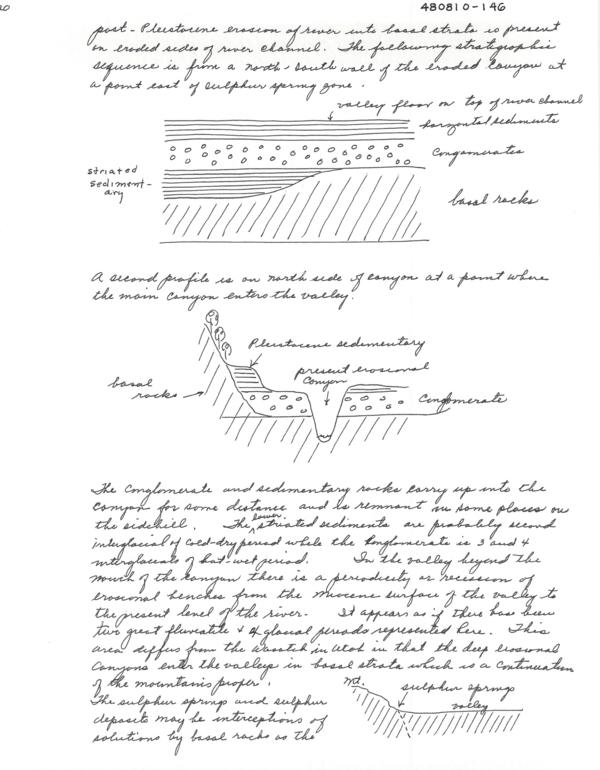 20
480810-146
post-Pleistocene erosion of river into basal strata is present
on eroded sides of river channel. The following stratigraphic
sequence is from a north-south wall of the eroded canyon at
a point east of sulphur spring zone.
valley floor on top of river channel
horizontal sediments
Congomerates
striated
sediment-
ary
basal rocks
A second profile is on north side of canyon at a point where
the main canyon enters the valley.
Pleistocene sedimentary
present erosional
Canyon
basal
rocks
Conglomerate
The Conglomerate and sedimentary rocks carry up into the
canyon for some distance and is remnant in some places on
the sidehill. The lower striated sediments are probably second
interglacial of cold-dry period while the Konglomerate is 3 and 4
interglacials of hot-wet period. In the valley beyond the
mouch of the kanyon there is a periodicity or recission of
erosional benches from the miocene surface of the valley to
the present level of the river. It appears as if there has been
two great fluveatile & 4 glacial periods represented here. This
area differs from the Wasatch in Utah in that the deep erosional
Canyons enter the valleys in basal strata which is a continuation
of the mountains proper.
Mt.
sulphur springs
valley
The sulphur springs and sulphur
deposits may be interceptions of
solutions by basal rocks as the